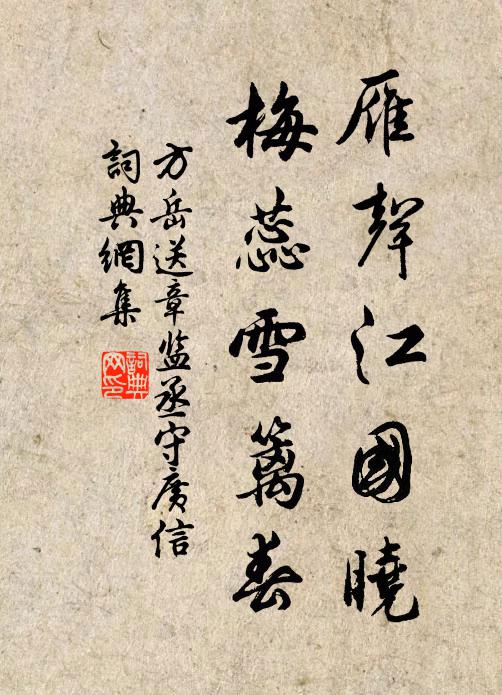 雁聲江國曉
梅蕊雪篱春
方岳送章监丞守廣信
詞典網集
詞典网印